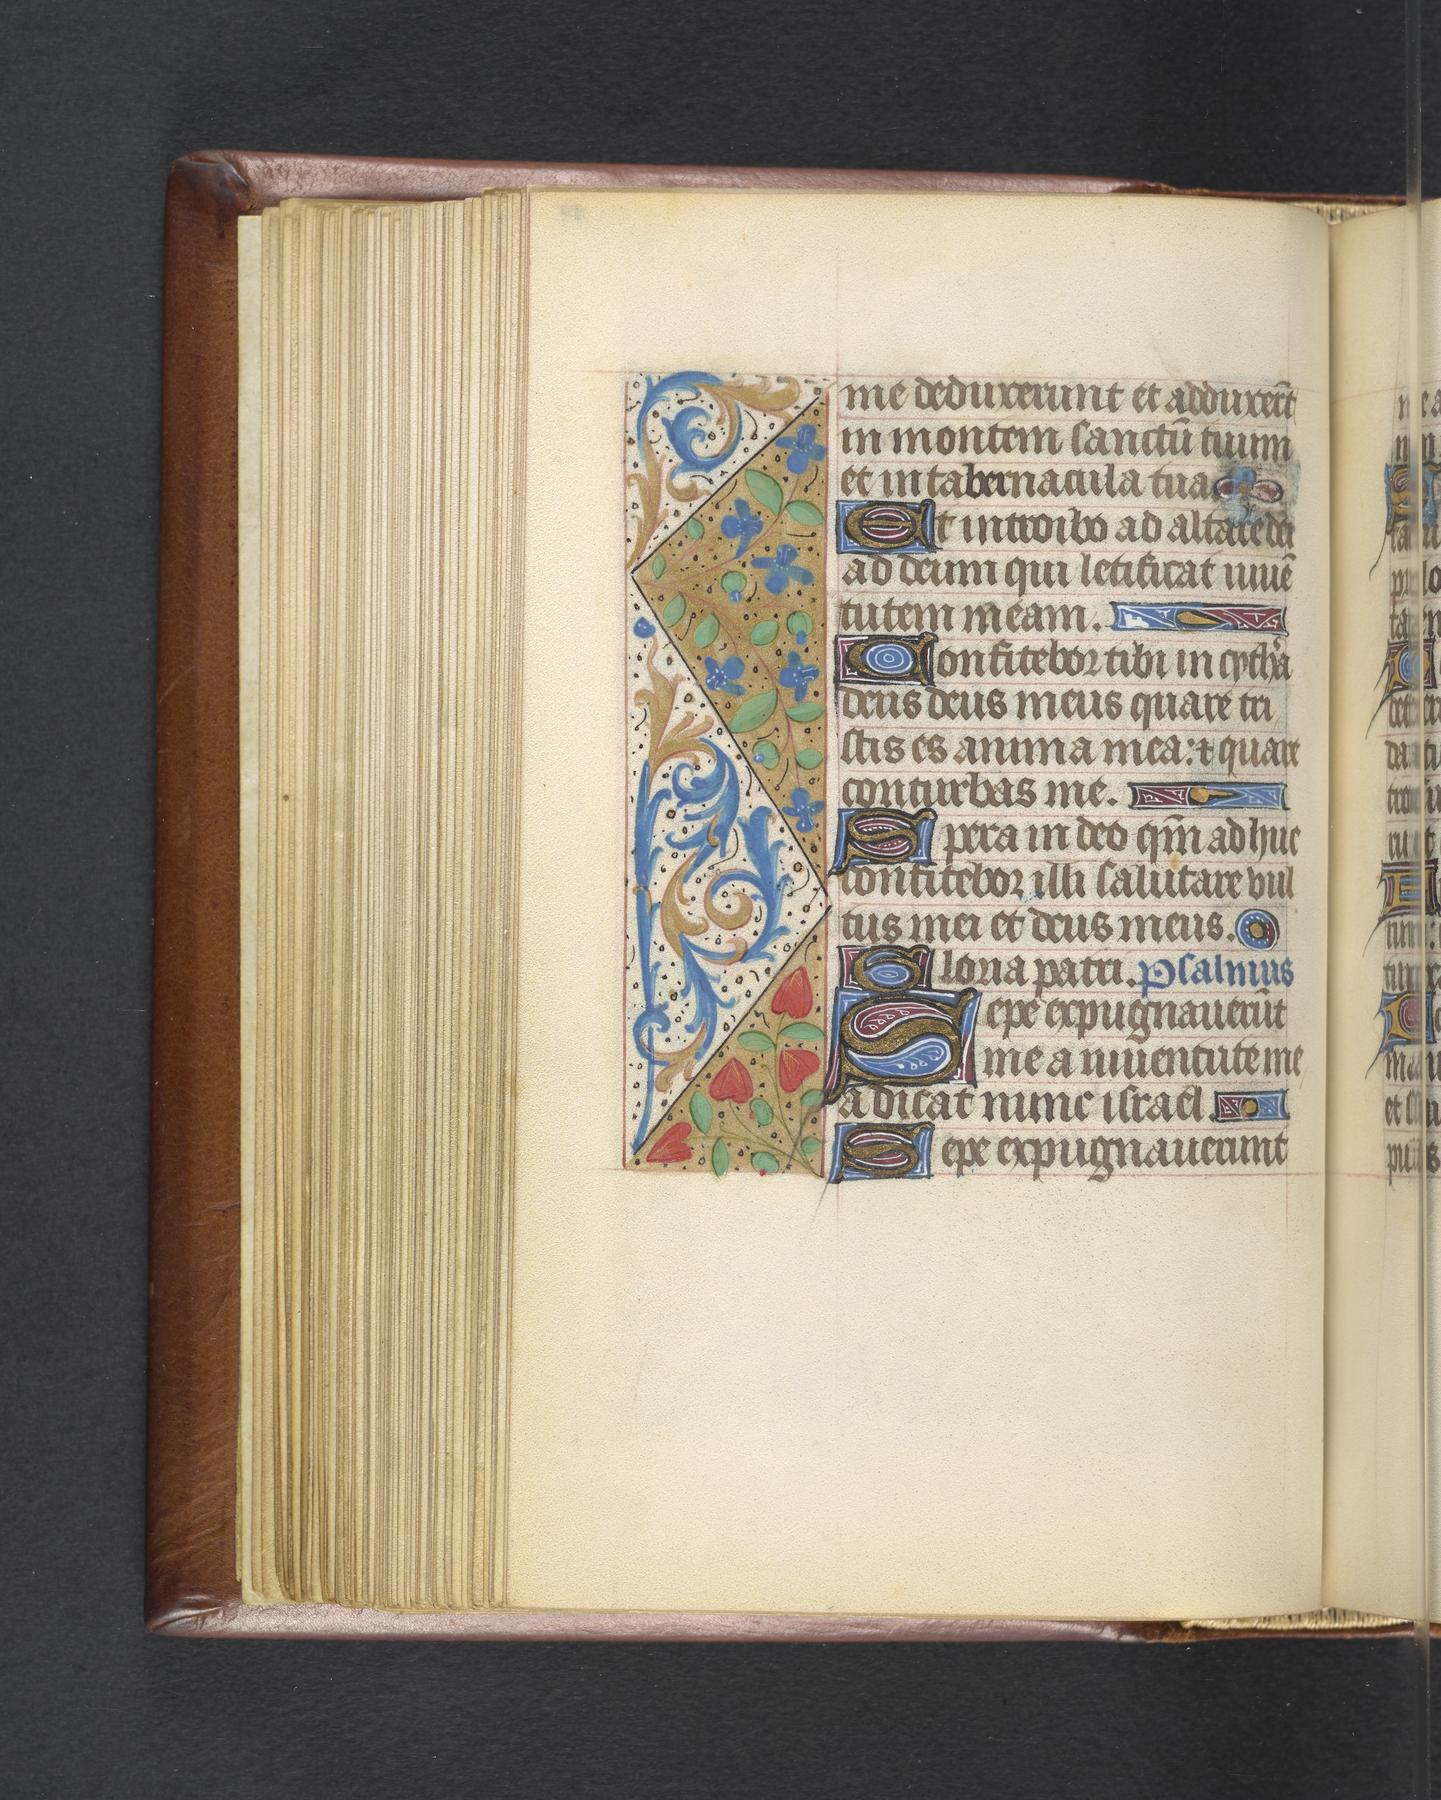 me deduxerunt et adduxer̄t
in montem sanctū tuum
et in tabernacula tua
Et introibo ad altare dei
ad deum qui letificat iuuē
tutem meam.
Confitebor tibi in cytha
deus deus meus quare tri
stis es anima mea: ⁊ quare
conturbas me.
Spera in deo qm̄ adhuc
confitebor illi salutare vul
tus mei et deus meus.
Gloria patri. Psalmus
Sepe expugnauerūt
me a iuuentute me
a dicat nunc israel.
Sepe expugnauerunt